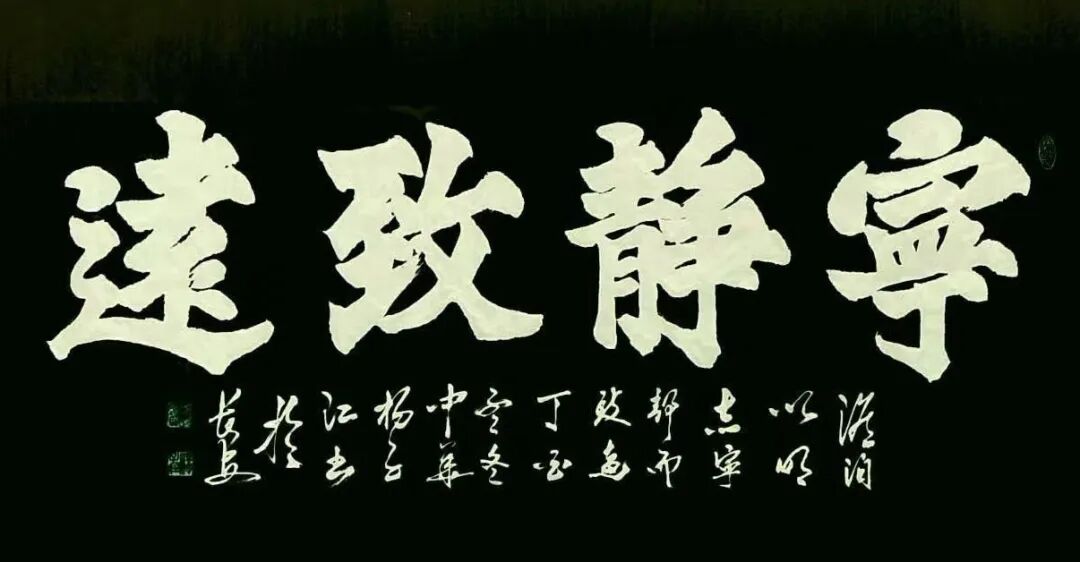 寧靜致遠
澹泊
以明
志寧
靜而
致遠
丁酉
之冬
中華
楊子
江書
於
長安